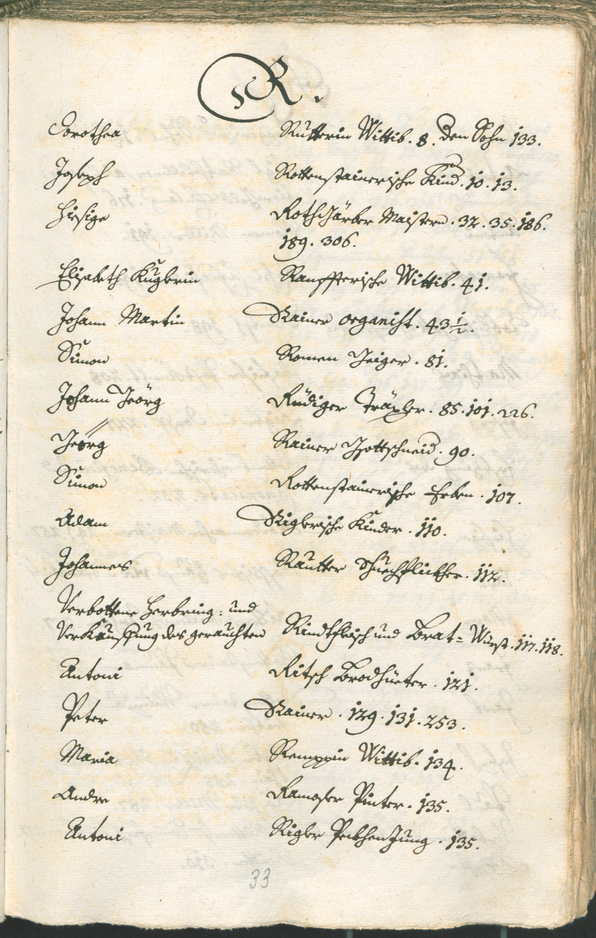 R.
Dorothea Rutterin Wittib. 8. den Sohn 133.
Joseph Rottenstainerische Kind. 10. 13.
Hiesige Rothgärber Maistern. 32. 35. 186.
189. 306.
Elisabeth Kuglerin Ranfftlerische Wittib. 41.
Johann Martin Rainer organist. 43 1/2.
Simon Romen Zeiger. 81.
Johann Geörg Rüdiger Träxler. 85. 101. 226.
Geörg Rainer 90.
Simon Rottenstainerische Erben. 107.
Adam Riglerische Kinder. 110.
Johannes Rautter Schuechflickher. 112.
Verbottene Herbring: und
Verkauffung des gerauchten Rindtfleisch und Brat=Würst. 117. 118.
Antoni Ritsch Brodhüeter. 121.
Peter Rainer. 129. 131. 253.
Maria Remppin Wittib. 134.
Andre Ramoser Pinter. 135.
Antoni Rigler Peckhen Jung. 135.
33